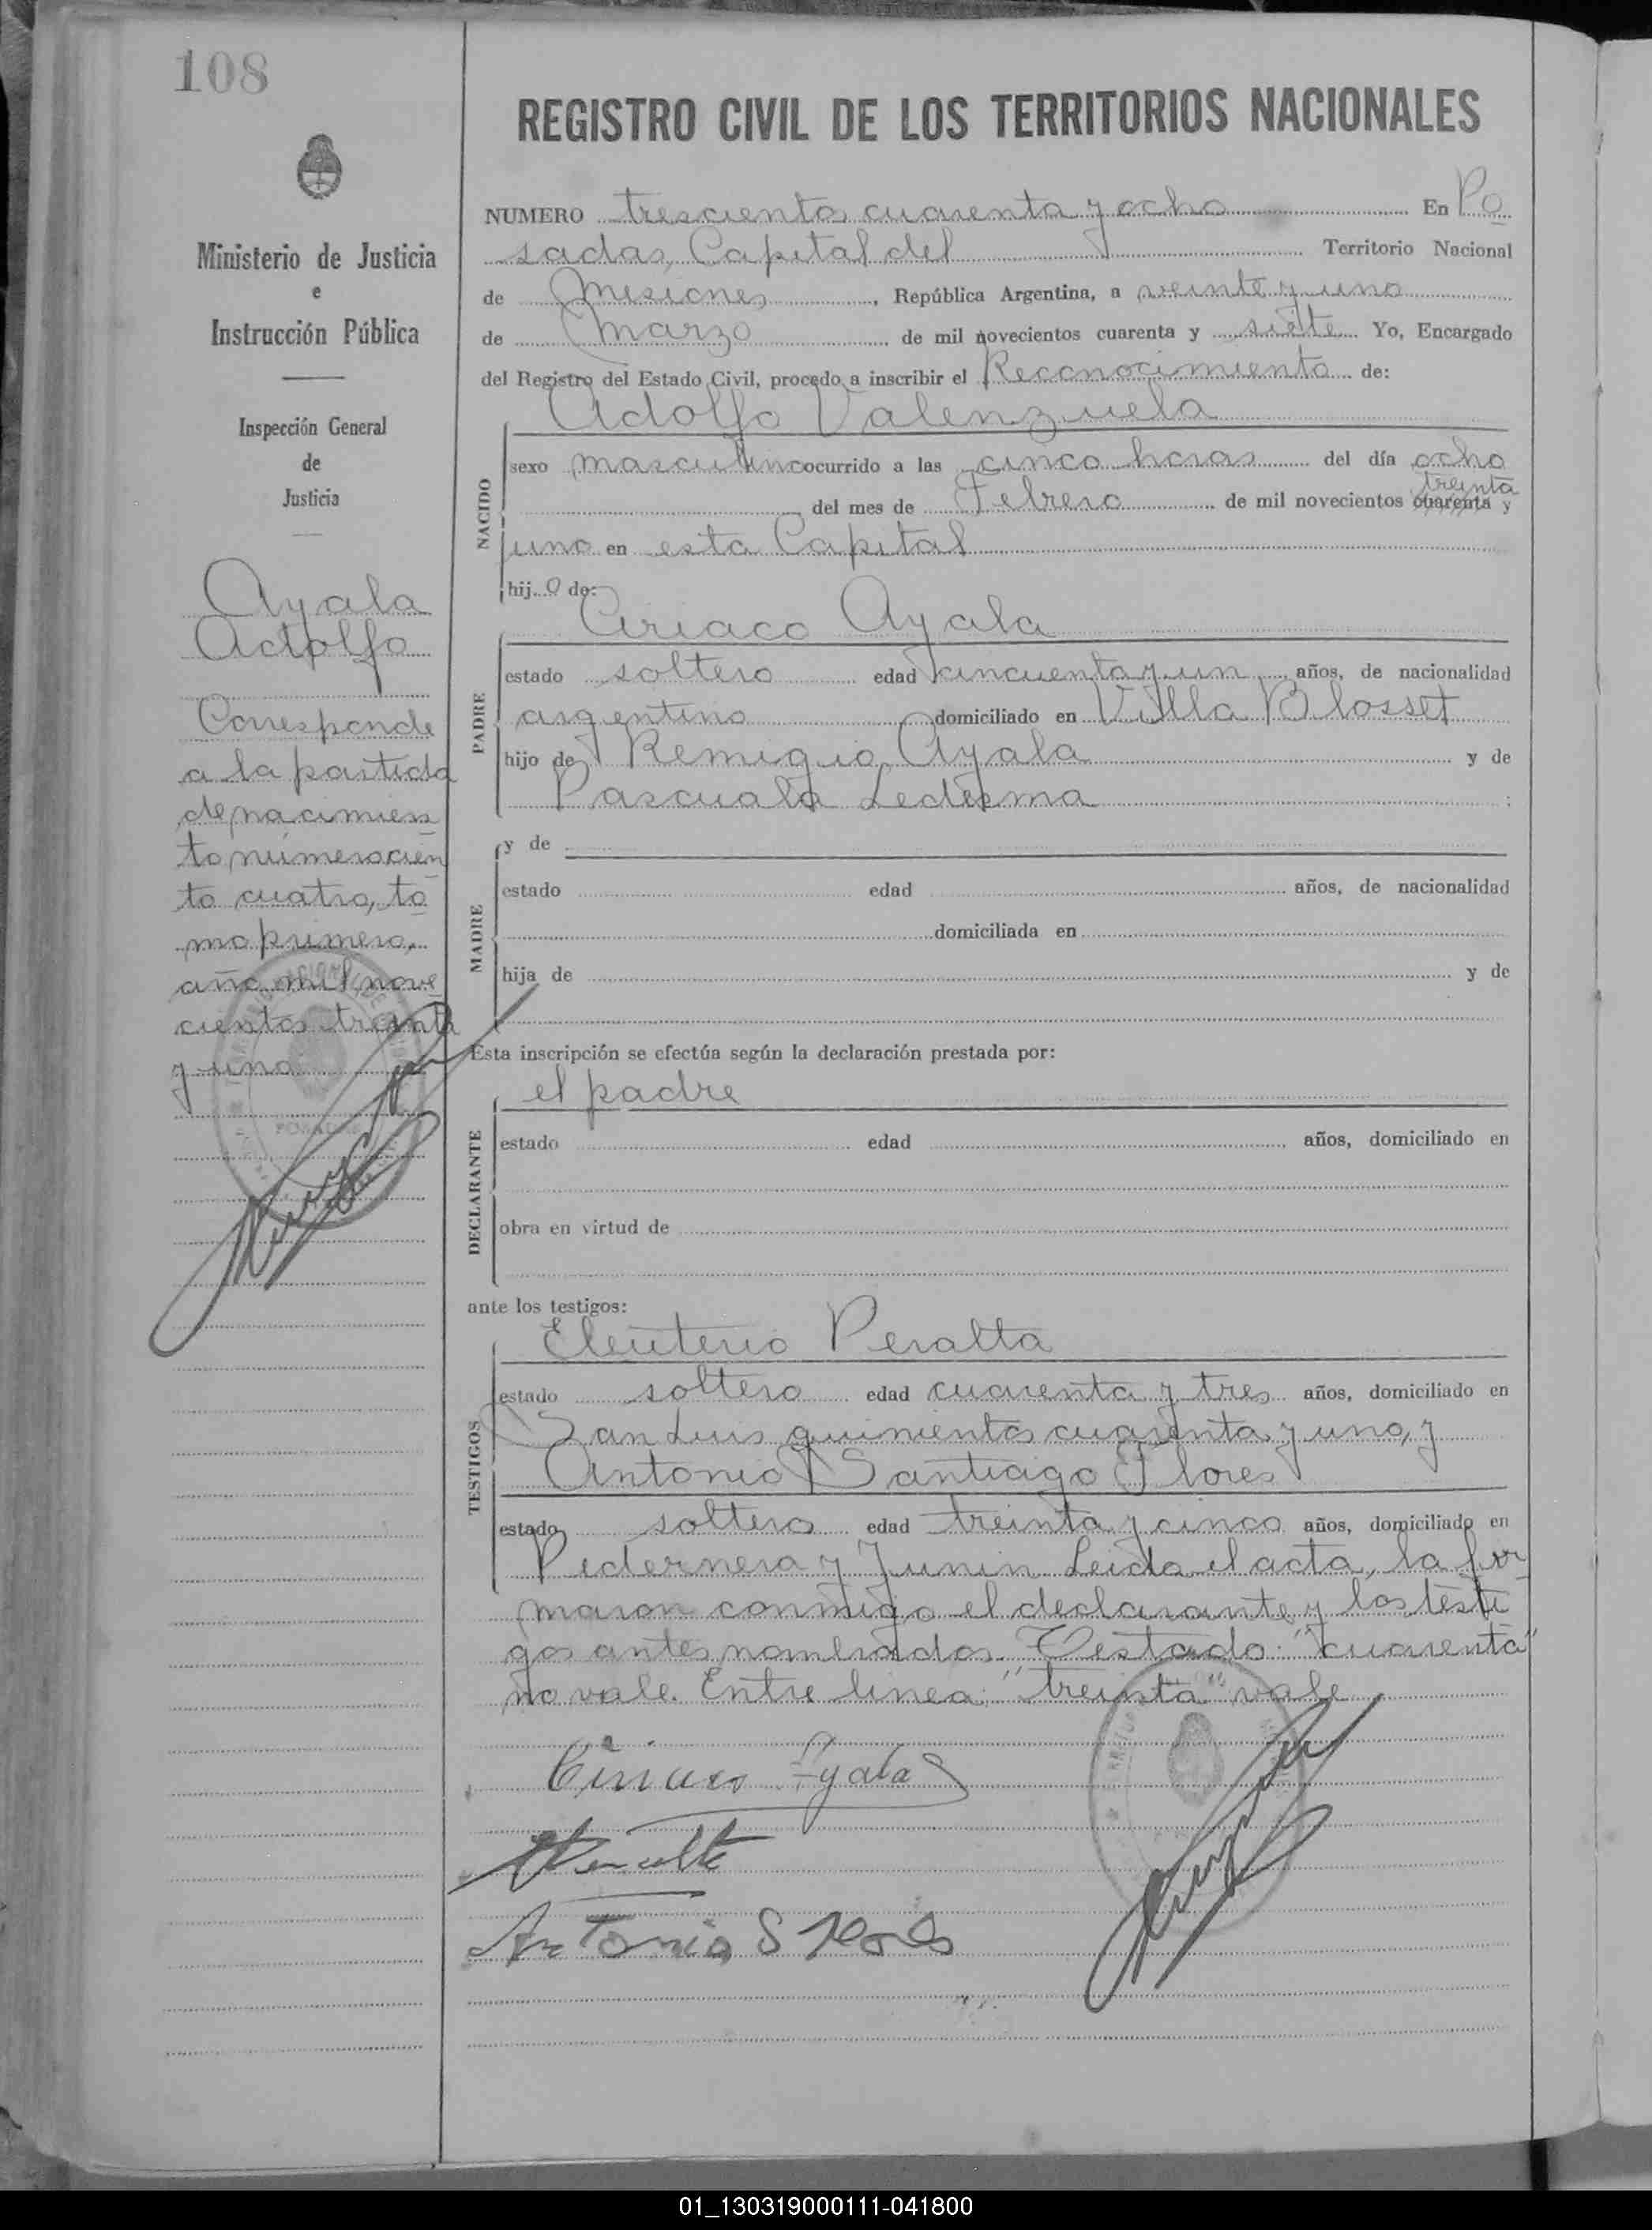 108
REGISTRO CIVIL DE LOS TERRITORIOS NACIONALES
Ministerio de Justicia
e
Instrucción Pública
Inspección General
de
Justicia
Ayala
Adolfo
Corresponde
a la partida
de nacimien
to número cien
to cuatro, to
mo primero,
año mil nove
cientos treinta
y uno
NUMERO trescientos cuarenta y ocho En Po
sadas, Capital del Territorio Nacional
de Misiones, República Argentina, a veinte y uno
de Marzo de mil novecientos cuarenta y siete Yo, Encargado
del Registro del Estado Civil, procedo a inscribir el Reconocimiento de:
Adolfo Valenzuela
NACIDO
sexo masculino ocurrido a las cinco horas del día ocho
treinta
del mes de Febrero de mil novecientos cuarenta y
uno en esta Capital
hij o de:
Ciriaco Ayala
PADRE
estado soltero edad cincuenta y un años, de nacionalidad
argentino domiciliado en Villa Blosset
hijo de Remigio Ayala y de
Pascuala Ledesma ;
MADRE
y de
estado edad años, de nacionalidad
domiciliada en
hija de y de
Esta inscripción se efectúa según la declaración prestada por:
el padre
DECLARANTE
estado edad años, domiciliado en
obra en virtud de
ante los testigos:
Eleuterio Peralta
TESTIGOS
estado soltero edad cuarenta y tres años, domiciliado en
San Luis quinientos cuarenta y uno, y
Antonio Santiago Flores
estado soltero edad treinta y cinco años, domiciliado en
Pedernera y Junin Leida el acta, la fir
maron conmigo el declarante y los testi
gos antes nombrados. Testado: "cuarenta"
no vale. Entre linea: "treinta" vale
Ciriaco Ayala
Peralta
Antonio S Flores
01_130319000111-041800